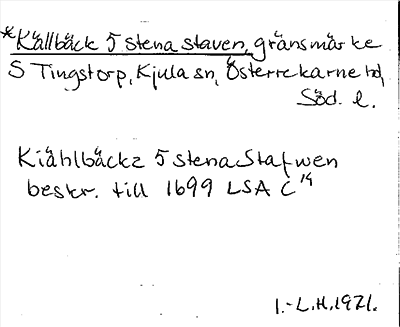 *Källbäck 5 stena staven, gränsmärke
S Tingstorp, Kjula sn, Österrekarne hd,
Söd. l.
Kiählbäckz 5 stena Stafwen
beskr. till 1699 LSA C¹⁴
I.-L.H. 1971.